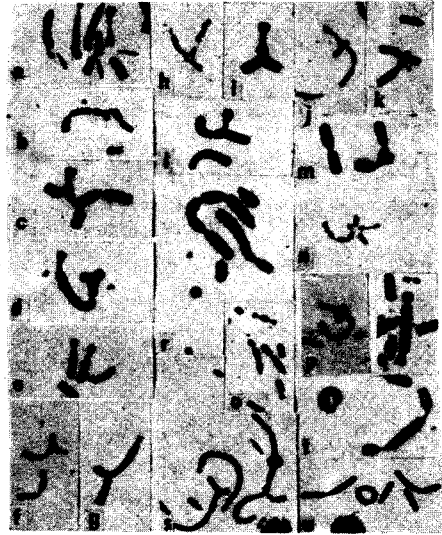 a
h
i
j
k
b
l
m
c
n
d
e
r
o
p
f
g
s
t
u